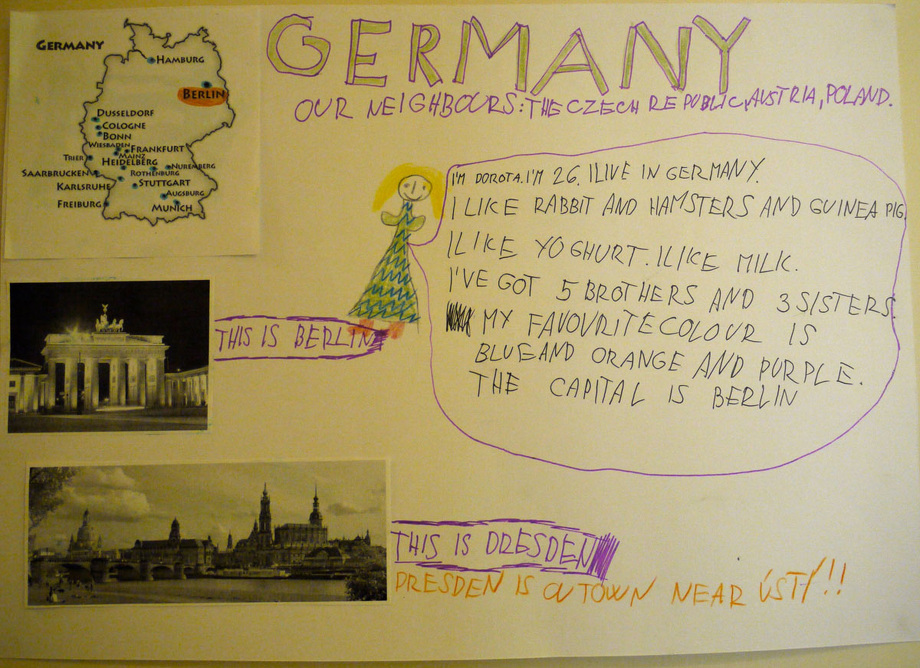 GERMANY
OUR NEIGHBOURS: THE CZECH REPUBLIC, AUSTRIA, POLAND.
GERMANY
HAMBURG
BERLIN
DUSSELDORF
COLOGNE
BONN
WIESBADEN
FRANKFURT
MAINZ
TRIER
HEIDELBERG
NUREMBERG
SAARBRUCKEN
ROTHENBURG
KARLSRUHE
STUTTGART
AUGSBURG
FREIBURG
MUNICH
I'M DOROTA. I'M 26. I LIVE IN GERMANY.
I LIKE RABBIT AND HAMSTERS AND GUINEA PIG.
I LIKE YOGHURT. I LIKE MILK.
I'VE GOT 5 BROTHERS AND 3 SISTERS.
MY FAVOURITE COLOUR IS
BLUE AND ORANGE AND PURPLE.
THE CAPITAL IS BERLIN
THIS IS BERLIN
THIS IS DRESDEN
DRESDEN IS TOWN NEAR ÚSTÍ!!